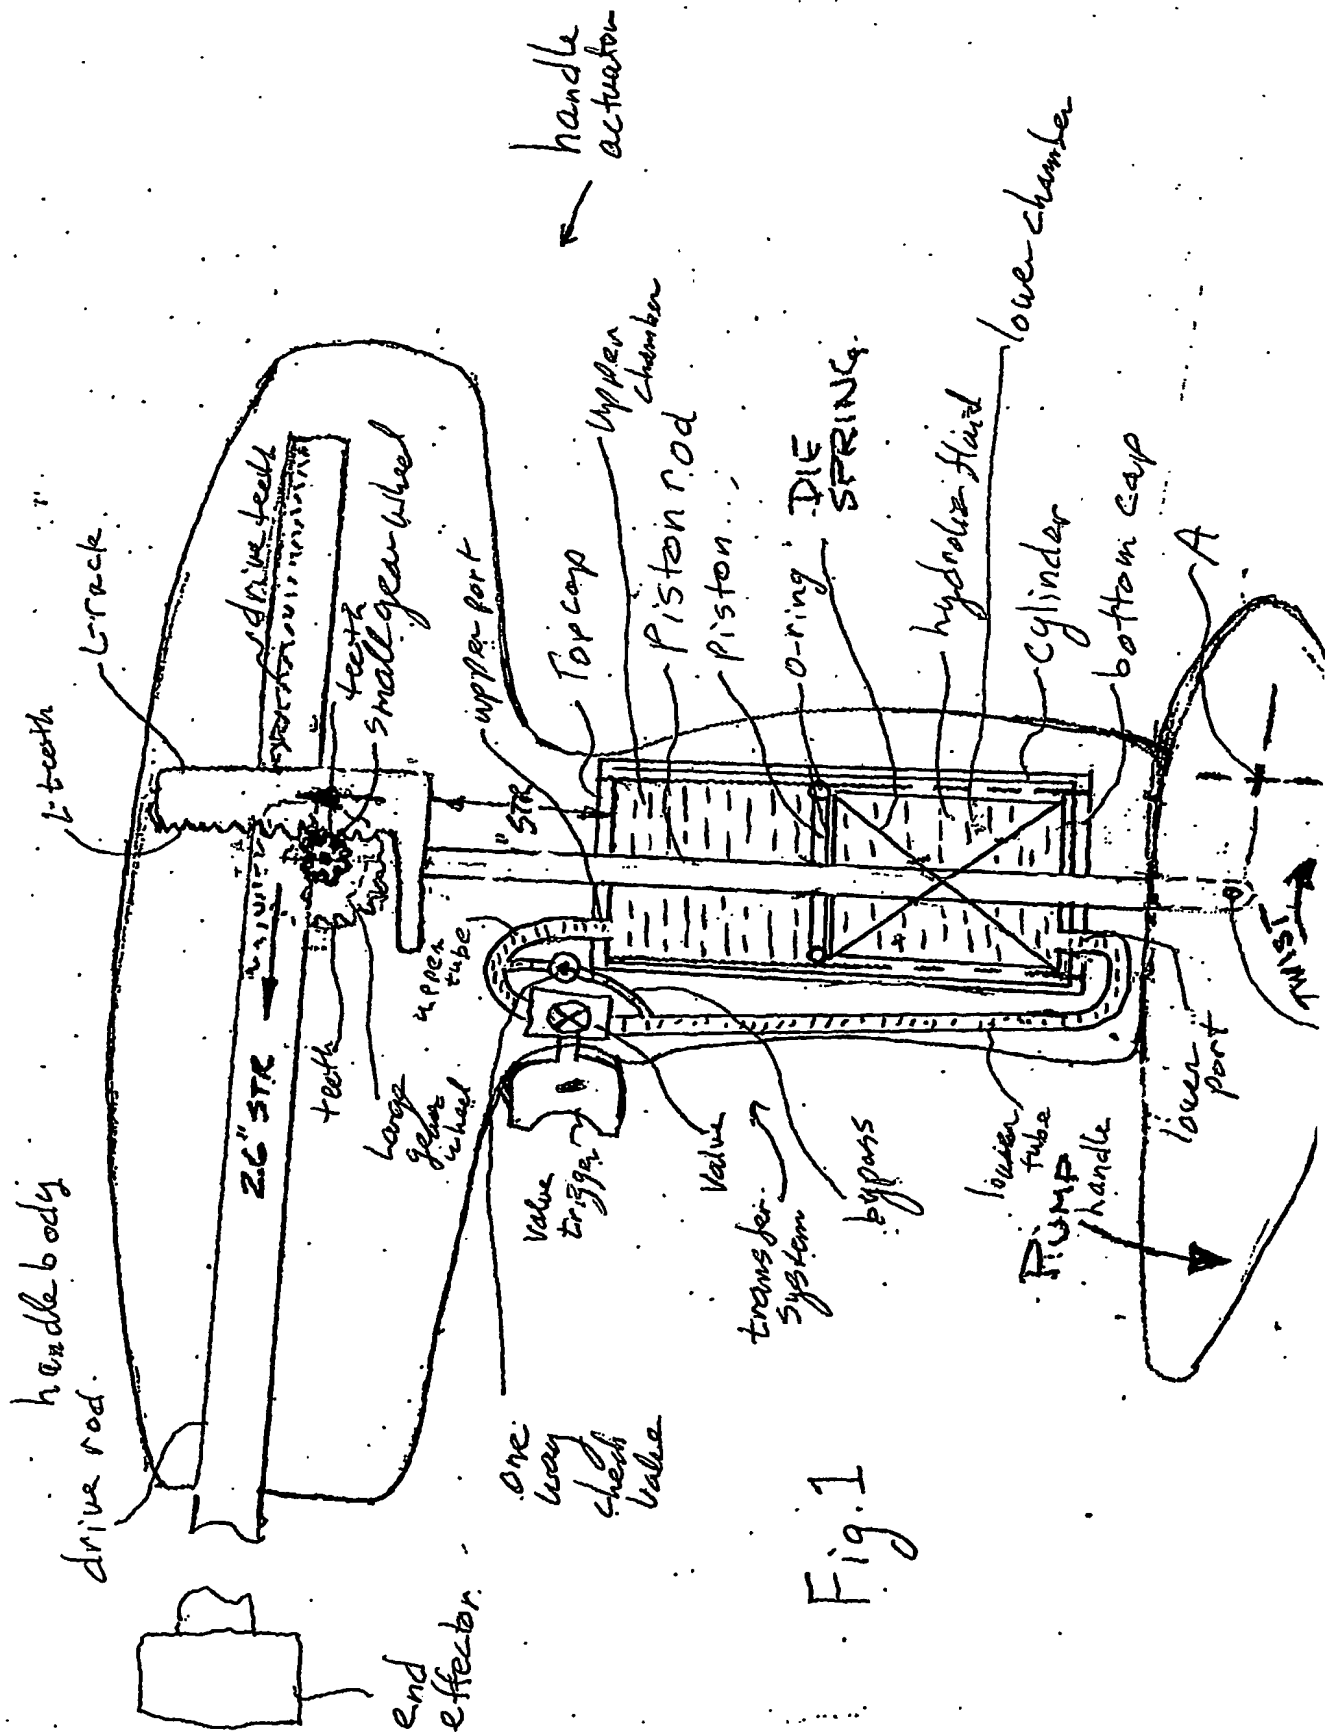 handle body
drive rod.
end
effector.
L-teeth
L-rack
drive teeth
teeth
small gear wheel
2.6" STR
teeth
Large
gear
wheel
upper
tube
upper port
Top cap
" STR
upper
chamber
Piston rod
Piston
o-ring
DIE
SPRING
hydrolic fluid
lower chamber
cylinder
bottom cap
A
handle
actuator
one
way
check
valve
valve
trigger
valve
transfer
system
bypass
lower
tube
lower
port
PUMP
handle
TWIST
Fig. 1